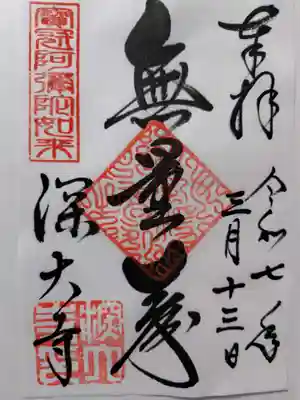 奉拝
令和七年
三月十三日
無量寿
寶冠阿彌陀如来
深大寺